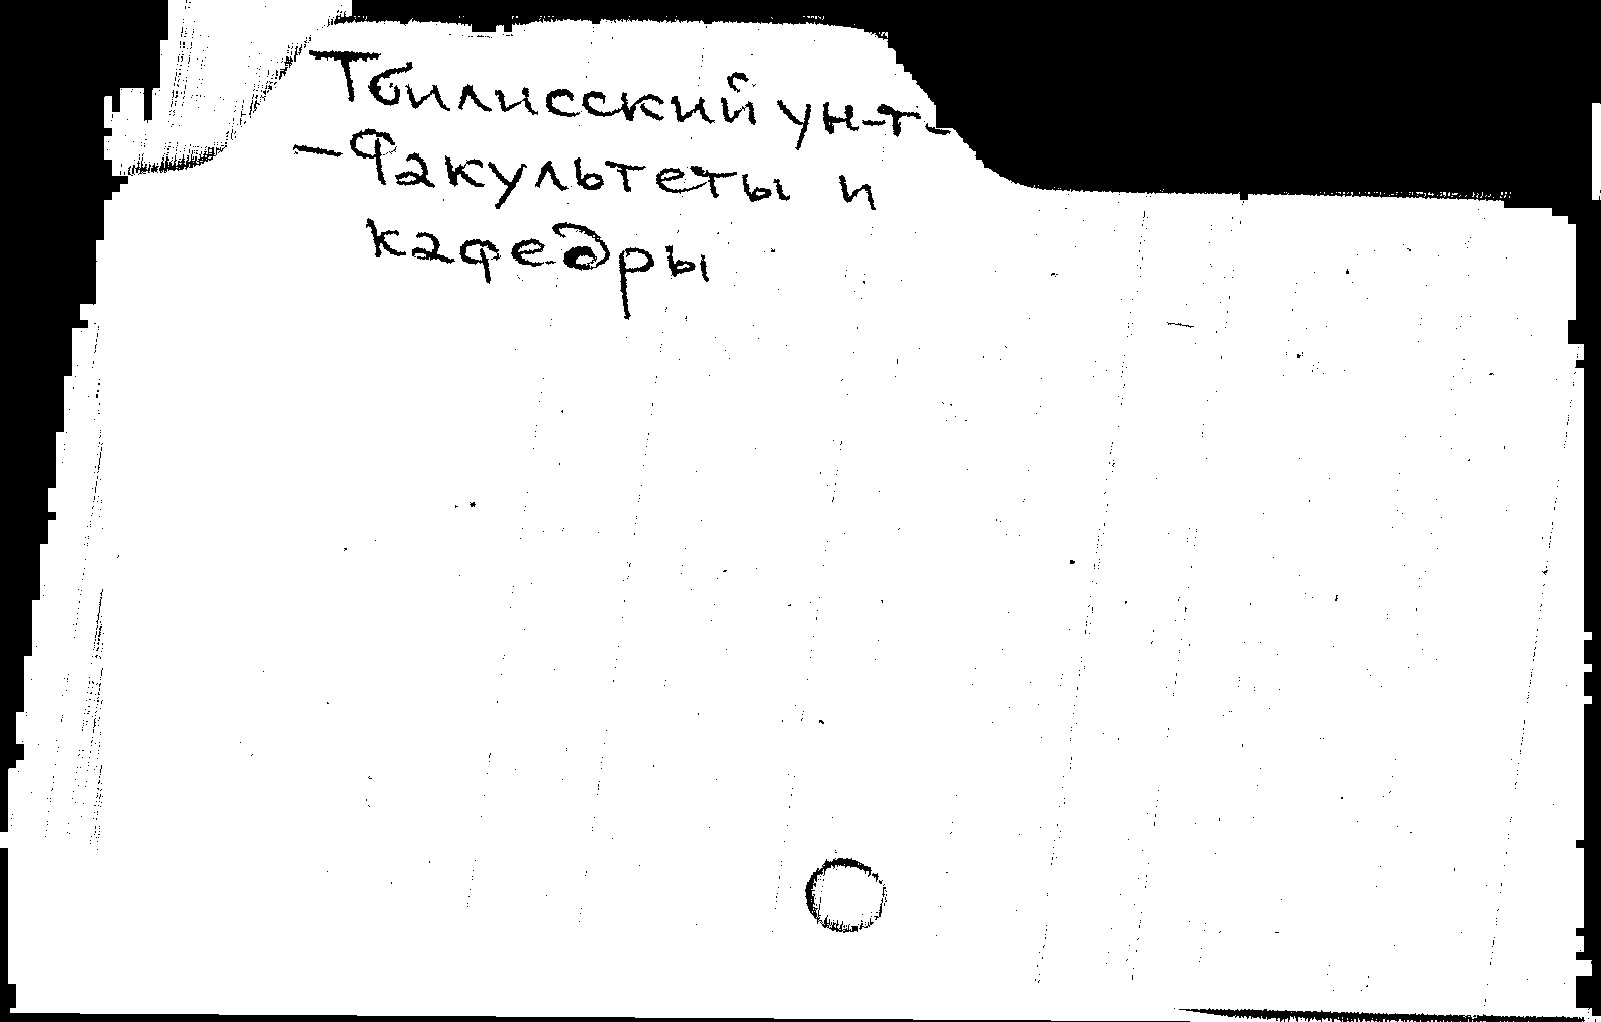 Тбилисский ун-т-
-Факультеты и
кафедры